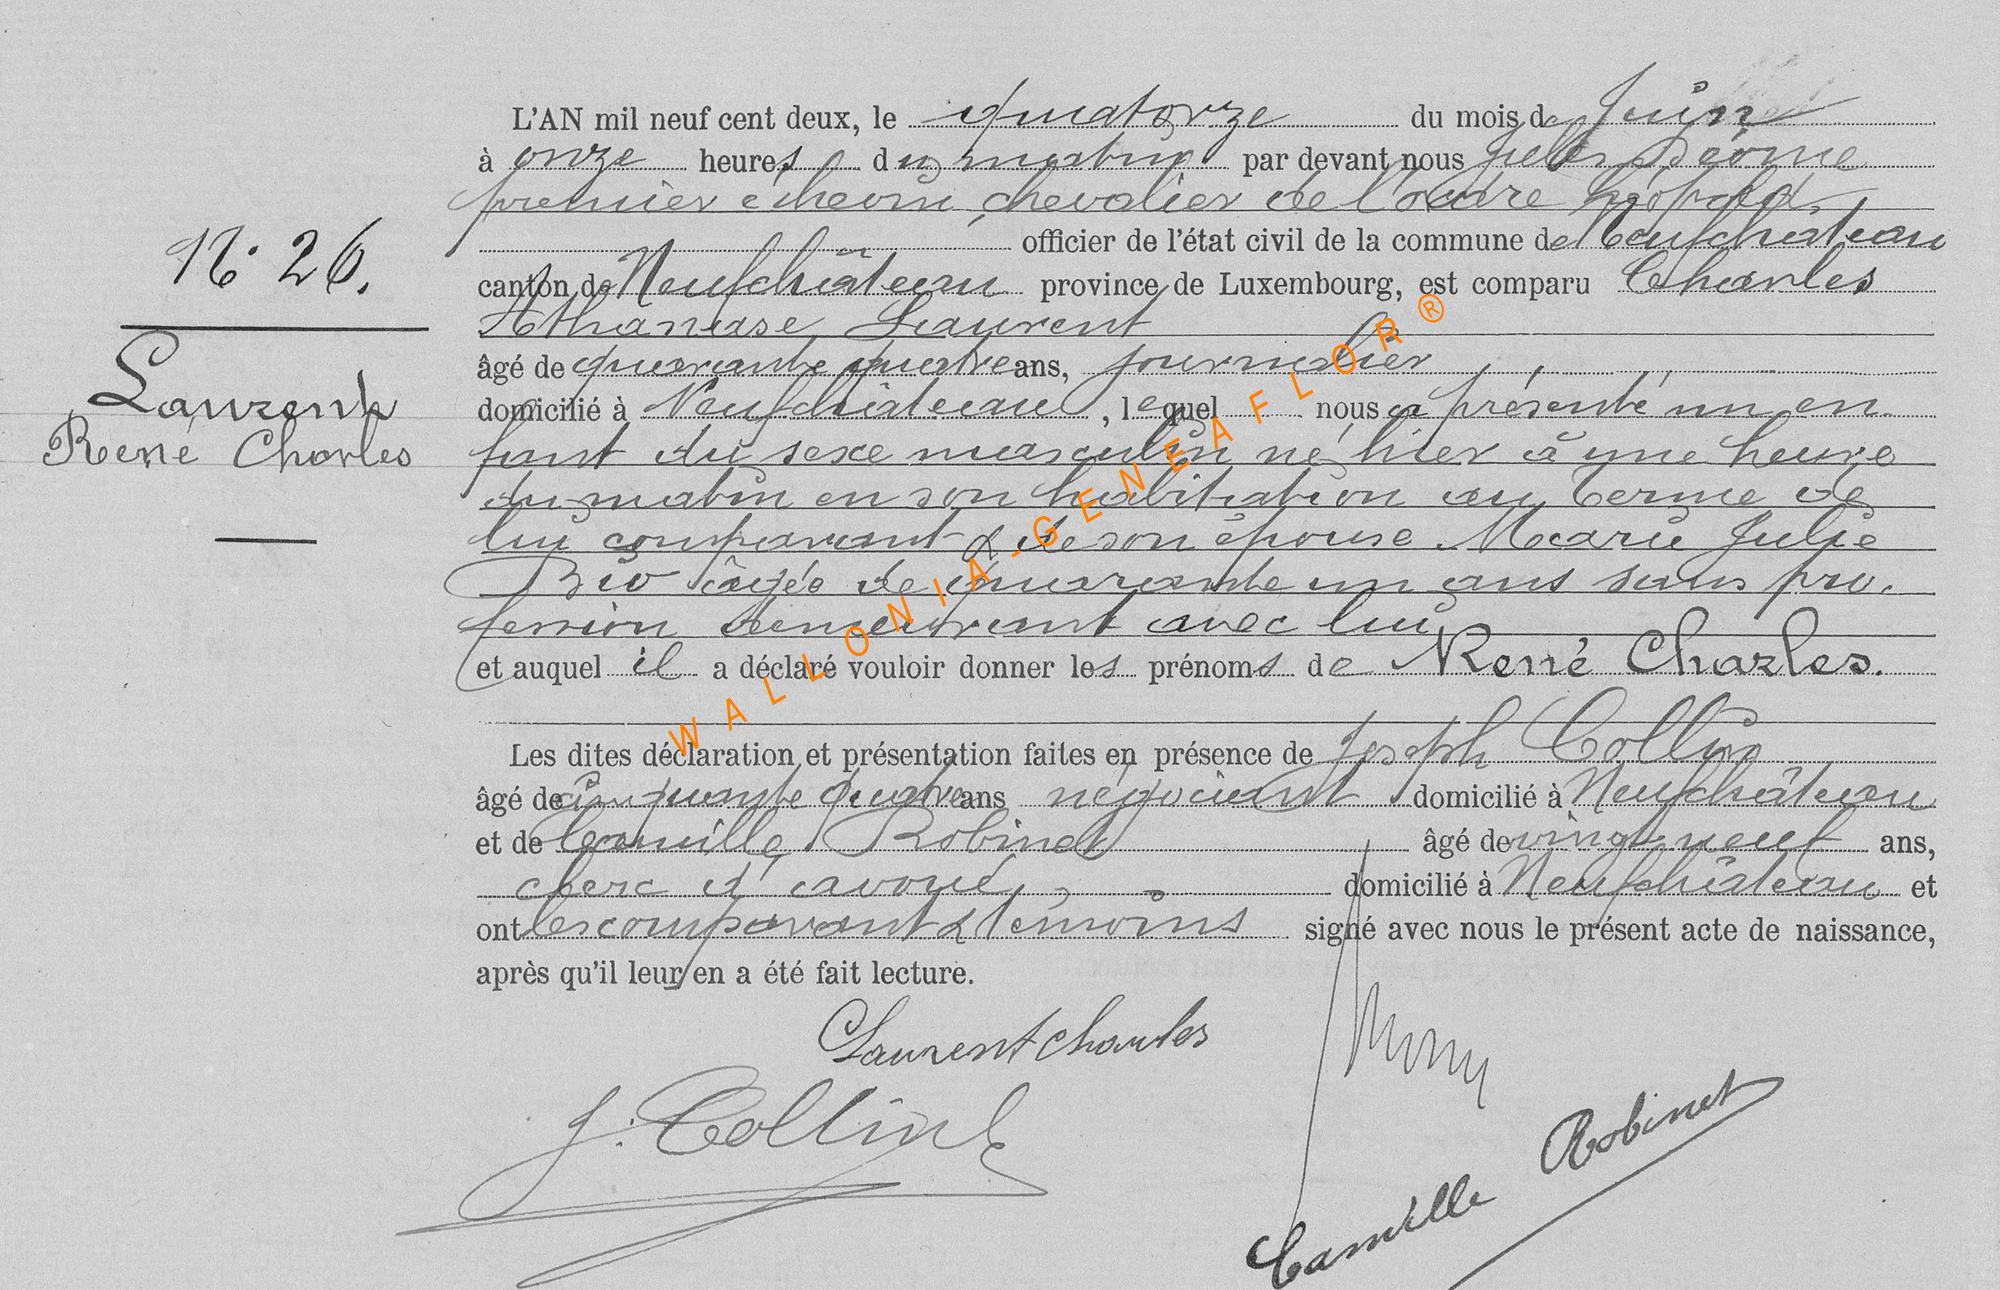 L'AN mil neuf cent deux, le quatorze du mois de Juin
à onze heures du matin par devant nous Jules
premier échevin chevalier de l'ordre Léopold,
officier de l'état civil de la commune de Neufchâteau
N° 26.
canton de Neufchâteau province de Luxembourg, est comparu Charles
Athanase Laurent
âgé de quarante quatre ans, journalier
Laurent
domicilié à Neufchâteau, lequel nous a présenté un en-
René Charles
fant du sexe masculin né hier à une heure
du matin en son habitation au Terme de
lui comparant & de son épouse Marie Julie
âgée de quarante un ans sans pro-
fession demeurant avec lui
et auquel il a déclaré vouloir donner les prénoms de René Charles.
Les dites déclaration et présentation faites en présence de Joseph Collin
âgé de cinquante quatre ans négociant domicilié à Neufchâteau
et de Camille Robinet âgé de vingt neuf ans,
clerc d'avoué, domicilié à Neufchâteau et
ont les comparant & témoins signé avec nous le présent acte de naissance,
après qu'il leur en a été fait lecture.
Laurent Charles
J. Collin
Camille Robinet
WALLONIA-GENEAFLOR®